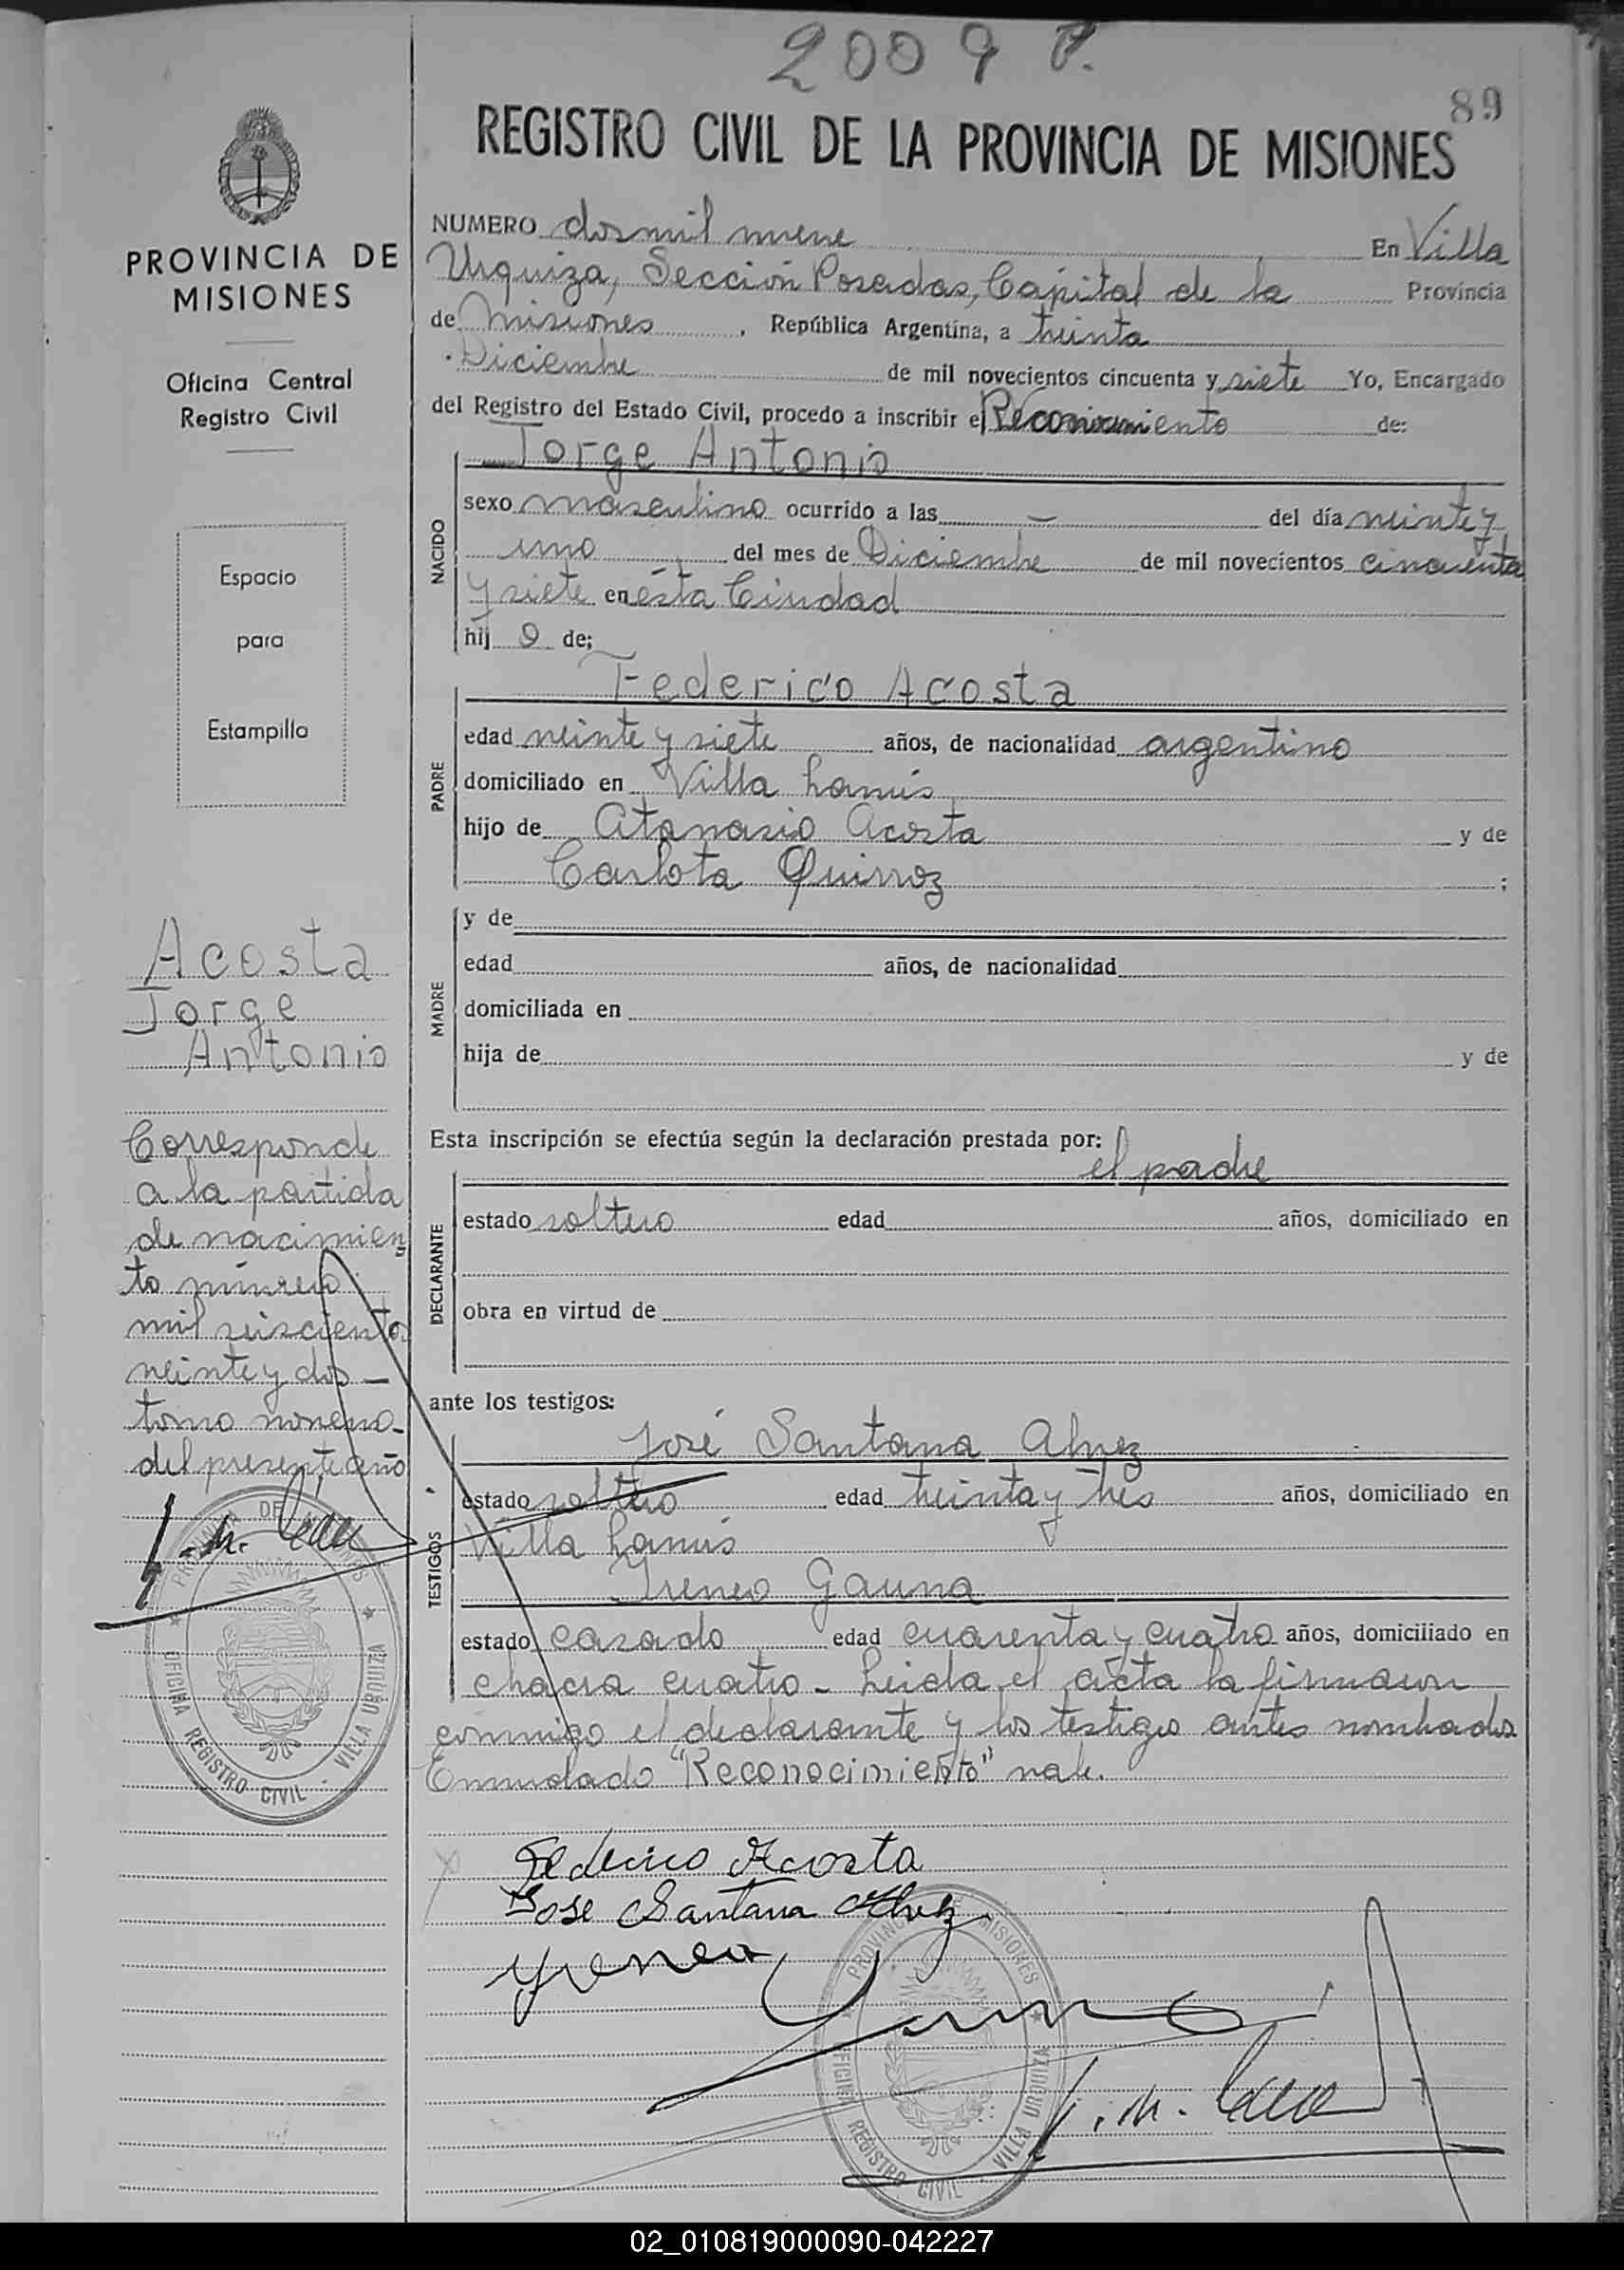 2009 P.
89
REGISTRO CIVIL DE LA PROVINCIA DE MISIONES
PROVINCIA DE
MISIONES
Oficina Central
Registro Civil
Espacio
para
Estampilla
Acosta
Jorge
Antonio
Corresponde
a la partida
de nacimien
to número
mil seiscientos
veinte y dos -
tomo noveno -
del presente año
PROVINCIA DE MISIONES
OFICINA REGISTRO CIVIL - VILLA URQUIZA
NUMERO dosmil nueve En Villa
Urquiza, Sección Posadas, Capital de la Provincia
de Misiones, República Argentina, a treinta
Diciembre de mil novecientos cincuenta y siete Yo, Encargado
del Registro del Estado Civil, procedo a inscribir el Reconocimiento de:
Jorge Antonio
NACIDO
sexo masculino ocurrido a las — del día veinte y
uno del mes de Diciembre de mil novecientos cincuenta
y siete en ésta Ciudad
hij o de;
Federico Acosta
PADRE
edad veinte y siete años, de nacionalidad argentino
domiciliado en Villa Lanús
hijo de Atanasio Acosta y de
Carlota Quirroz ;
MADRE
y de
edad años, de nacionalidad
domiciliada en
hija de y de
Esta inscripción se efectúa según la declaración prestada por:
el padre
DECLARANTE
estado soltero edad años, domiciliado en
obra en virtud de
ante los testigos:
José Santana Alvez
TESTIGOS
estado soltero edad treinta y tres años, domiciliado en
Villa Lanús
Ireneo Gauna
estado casado edad cuarenta y cuatro años, domiciliado en
chacra cuatro - Leida el acta la firmaron
conmigo el declarante y los testigos antes nombrados
Enmendado "Reconocimiento" vale.
Federico Acosta
Jose Santana Alvez
Yreneo
PROVINCIA DE MISIONES
OFICINA REGISTRO CIVIL - VILLA URQUIZA
02_010819000090-042227